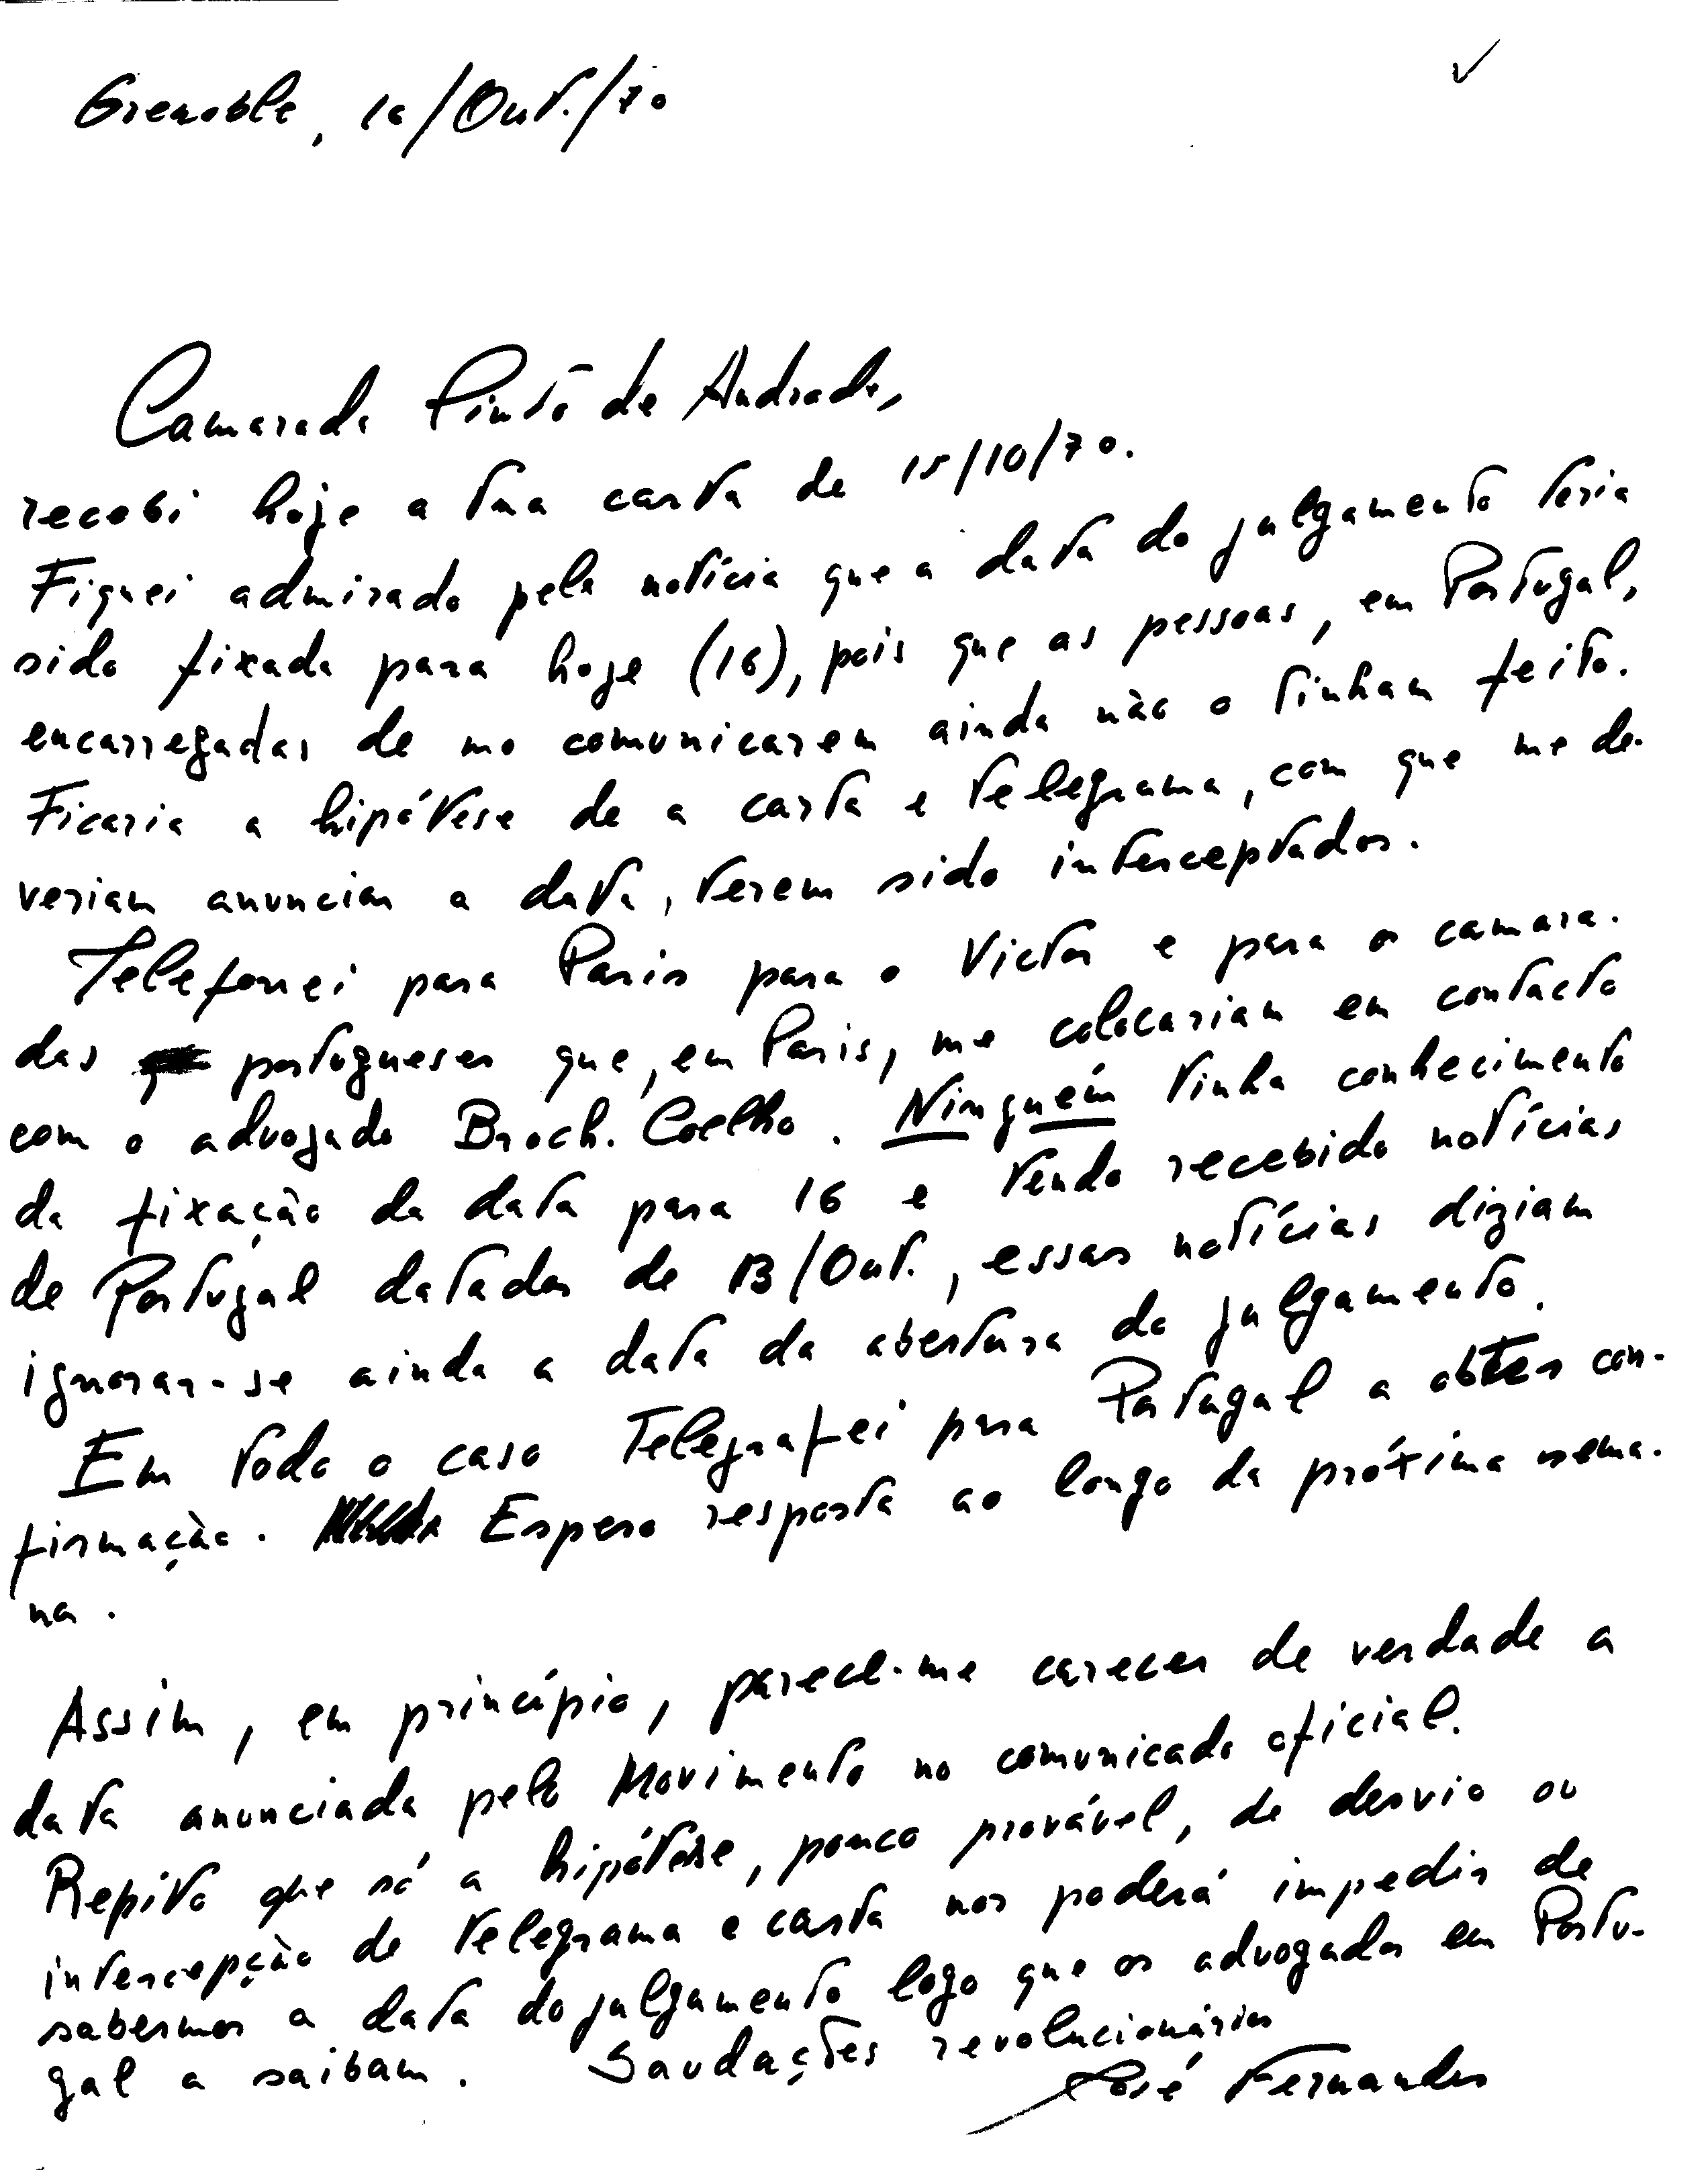 Grenoble, 16/Out./70
Camarada Pinto de Andrade,
recebi hoje a tua carta de 15/10/70.
Fiquei admirado pela notícia que a data do julgamento teria
sido fixada para hoje (16), pois que as pessoas, em Portugal,
encarregadas de mo comunicarem ainda não o tinham feito.
Ficaria a hipótese de a carta e telegrama, com que me de-
veriam anunciar a data, terem sido interceptados.
Telefonei para Paris para o Victor e para os camara-
das portugueses que, em Paris, me colocariam em contacto
com o advogado Broch. Coelho. Ninguém tinha conhecimento
da fixação da data para 16 e tendo recebido notícias
de Portugal datadas de 13/Out., essas notícias diziam
ignorar-se ainda a data da abertura do julgamento.
Em todo o caso Telegrafei para Portugal a obter con-
firmação. Espero resposta ao longo da próxima sema-
na.
Assim, em princípio, parece-me carecer de verdade a
data anunciada pelo Movimento no comunicado oficial.
Repito que só a hipótese, pouco provável, de desvio ou
intercepção de telegrama e carta nos poderá impedir de
sabermos a data do julgamento logo que os advogados em Portu-
gal a saibam. Saudações revolucionárias
José Fernandes